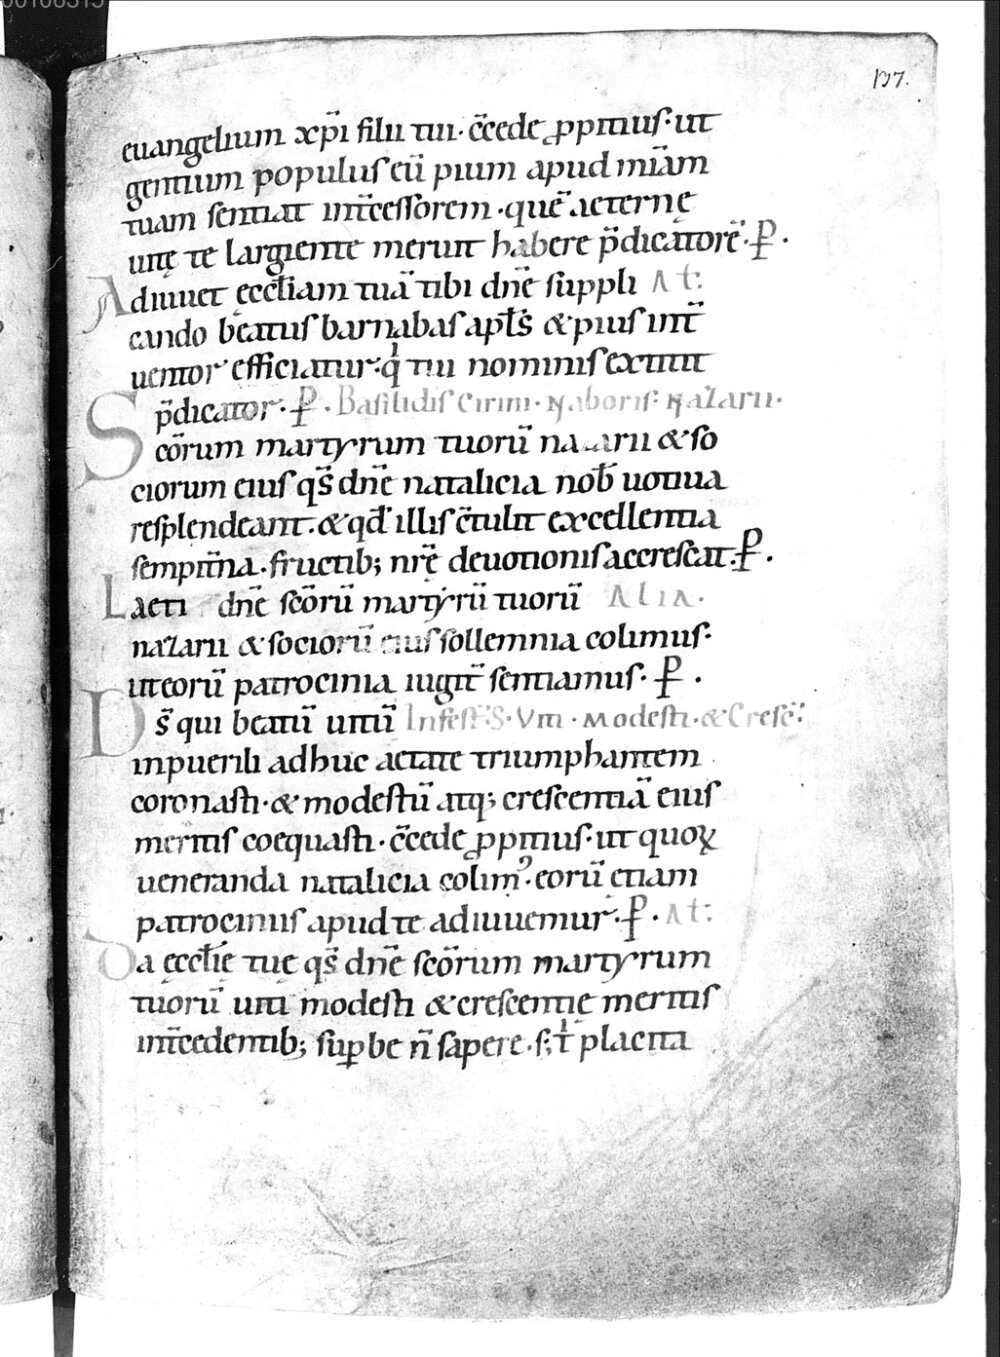 00106315
137.
euangelium xp̄i filii tui· c̄cede ꝓpitius· ut
gentium populus eū pium apud miām
tuam sentiat int̄cessorem· quē aeternę
uitę te largiente meruit habere p̄dicatorē· P·
Adiuuet ęcct̄iam tuā tibi dn̄e suppli At:
cando beatus barnabas apt̄s & pius int̄
uentor efficiatur· qͥ tui nominis extitit
p̄dicator· P· Basilidis Cirini· Naboris· Nazarii·
Scōrum martyrum tuorū nazarii & so
ciorum eius qs̄ dn̄e natalicia nob̄ uotiua
resplendeant· & qđ illis c̄tulit excellentia
sempit̄na· fructib; nr̄ę deuotionis accrescat· P·
Laeti dn̄e scōrū martyrū tuorū ALIA·
nazarii & sociorū eius sollemnia colimus·
ut eorū patrocinia iugit̄ sentiamus· P·
Ds̄ qui beatū uitū In fest̄ S· Viti· Modesti· & Crescē:
in puerili adhuc aetate triumphantem
coronasti· & modestū atq; crescentiā eius
meritis coequasti· c̄cede ꝓpitius· ut quoꝝ
ueneranda natalicia colimꝰ· eorū etiam
patrociniis apud te adiuuemur· P· At:
Da ęcct̄ię tuę qs̄ dn̄e scōrum martyrum
tuorū uiti modesti & crescentię meritis
int̄cedentib; suꝑbe n̄ sapere· s; t̄ placita